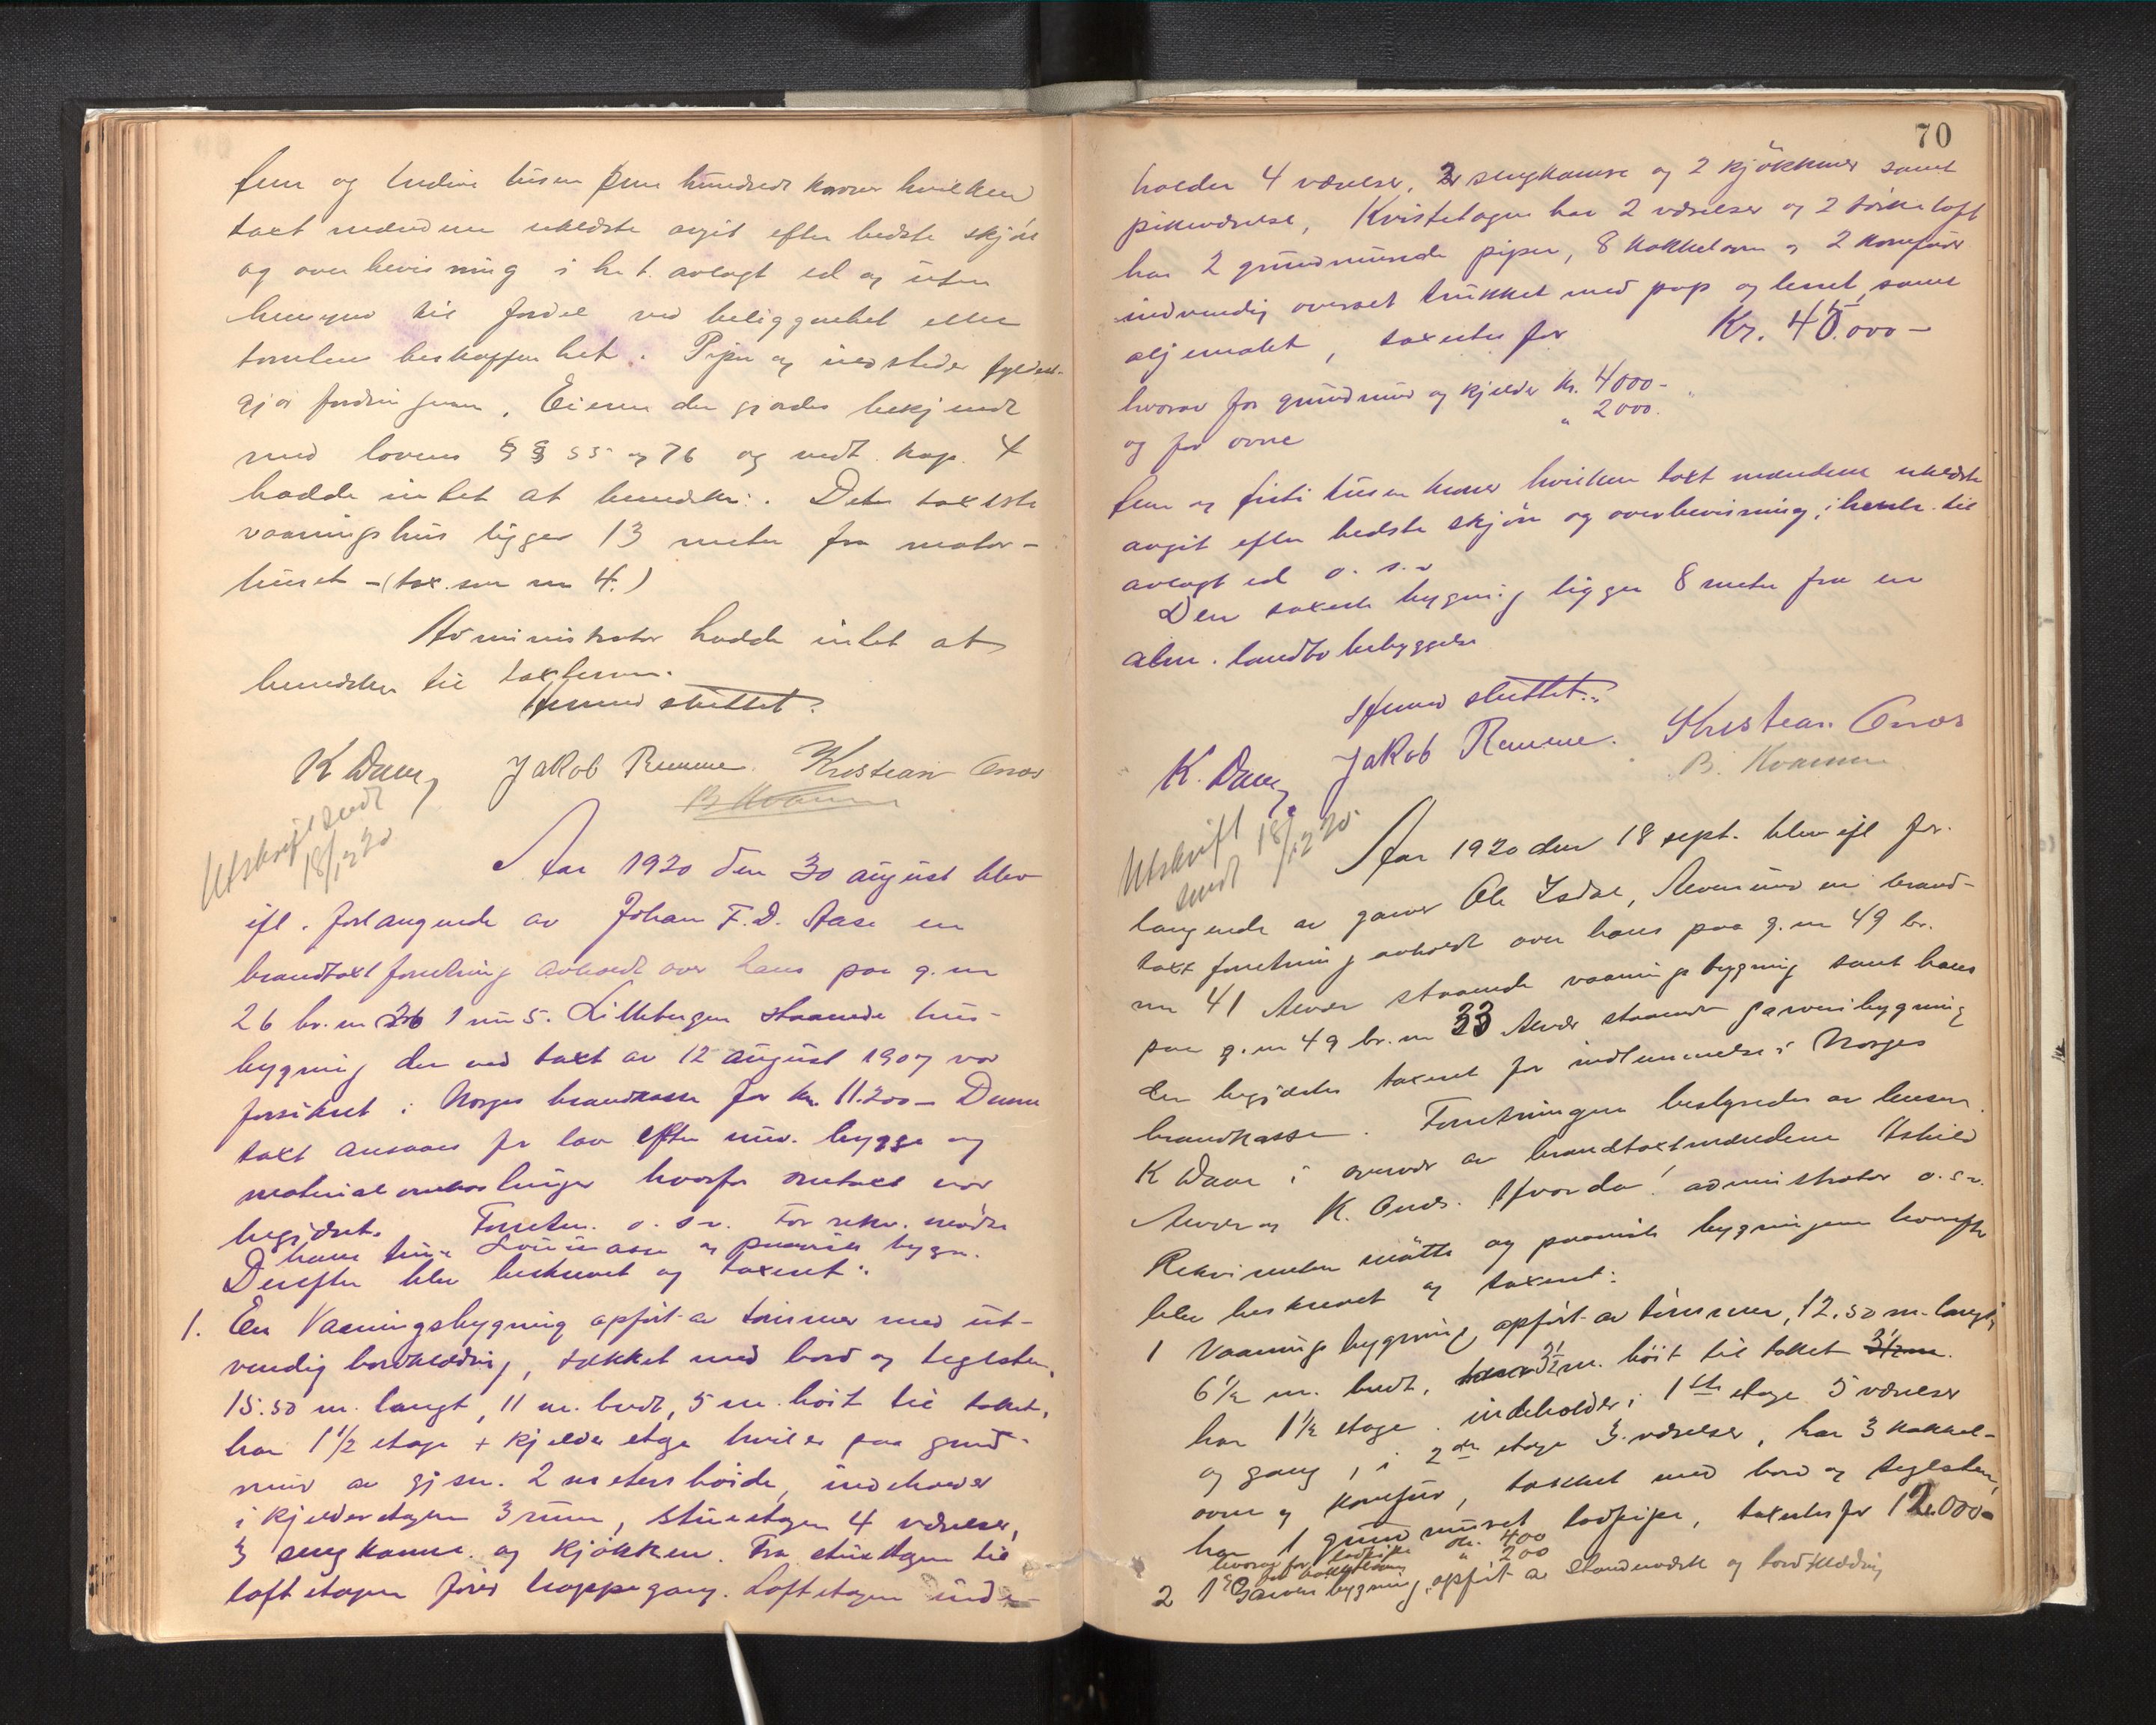 fem og tredive tusen fem hundrede kroner hvilken
taxt mændene erklærte avgit efter bedste skjön
og overbevisning i h.t. avlagt ed og uten
hensyn til fordel ved beliggenhet eller
tomtens beskaffenhet. Piper og ildsteder fyldest-
gjör fordringerne. Eieren der gjordes bekjendt
med lovens § § 55 og 76 og vedt. kap. 4
hadde intet at bemerke. Det taxerte
vaaningshus ligger 13 meter fra motor-
huset - (tax. som nr 4.)
Administrator hadde intet at
bemærke til taxterne.
Forretn. sluttet.
K Daae, Jakob Remme. Kristian Onæs
B Kvamme
Utskrift sendt
18/12 20
Aar 1920 den 30 august blev
ifl. forlangende av Johan F. D. Aase en
brandtaxtforretning avholdt over hans paa g.nr
26 br.nr 1 nr 5. Lillebergen staaende hus-
bygning der ved taxt av 12 august 1907 var
forsikret i Norges brandkasse for kr. 11.200 - Denne
taxt ansaaes for lav efter nuv. bygge og
materialomkostninger hvorfor omtaxt var
begjæret. Forretn. o. s. v. For rekv. mödte
hans hustru og paaviste bygn.
Derefter blev beskrevet og taxeret:
1. En Vaaningsbygning opfört av tömmer med ut-
vendig bordklædning, tækket med bord og teglsten,
15.50 m. langt, 11 m. bredt, 5 m. höit til taket,
har 1 1/2 etage + kjelder etage hviler paa grund-
mur av gj.sn. 2 meters höide, indeholder
i kjelderetagen 3 rum, stueetagen 4 værelser,
3 sengkamre og kjökken. Fra stueetagen til
loftetagen förer trappegang. Loftetagen inde-
70
holder 4 værelser, 2 sengkamre og 2 kjökkener samt
pikeværelse, Kvistetagen har 2 værelser og 2 törkeloft
har 2 grundmurede piper, 8 kakkelovne og 2 komfurer
indvendig overalt trukket med pap og lerret, samt
oljemalet, taxertes for Kr. 45.000 -
hvorav for grundmur og kjelder kr. 4000 -
og for ovne " 2000.
fem og firti tusen kroner hvilken taxt mændene erklærte
avgit efter bedste skjön og overbevisning, i henh. til
avlagt ed o. s. v
Den taxerte bygning ligger 8 meter fra en
alm. landbobebyggelse
Forretn. sluttet.
K. Daae, Jakob Remme. Kristian Onæs
B. Kvamme
Utskrift
sendt 18/12 20.
Aar 1920 den 18 sept. blev ifl for-
langende av garver Ole Isdal, Alversund en brand-
taxtforretning avholdt over hans paa g.nr 49 br.
nr 41 Alver staaende vaaningsbygning samt hans
paa g.nr 49 br.nr 33 Alver staaende garveribygning
der begjærtes taxeret for indlemmelse i Norges
brandkasse. Forretningen bestyredes av lensm.
K Daae i overvær av brandtaxtmændene Askild
Alver og K. Onæs. Hvorda! administrator o. s. v.
Rekvirenten mötte og paaviste bygningerne hvorefter
blev beskrevet og taxeret:
1 Vaaningsbygning opfört av tömmer, 12.50 m. langt,
6 1/2 m. bredt, 3 1/2 m. höit til taket 3 1/2 m.
har 1 1/2 etage. indeholder i 1ste etage 5 værelser
og gang, i 2den etage 3 værelser, har 3 kakkel-
ovne og komfur, tækket med bord og teglsten,
har 1 grundmuret lodpipe, taxertes for 12.000 -
hvorav for lodpipe kr. 400
og for kakkelovne " 200
2 1 Garveribygning, opfört av standerværk og bordklædning